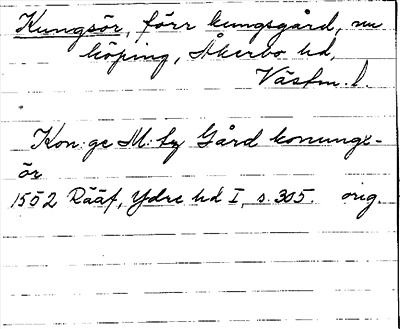 Kungsör, förr kungsgård, nu
köping, Åkerbo hd,
Västm. l.
Kon:ge M:tz Gård konungx-
ör
1552 Rääf, Ydre hd I, s. 305. orig.